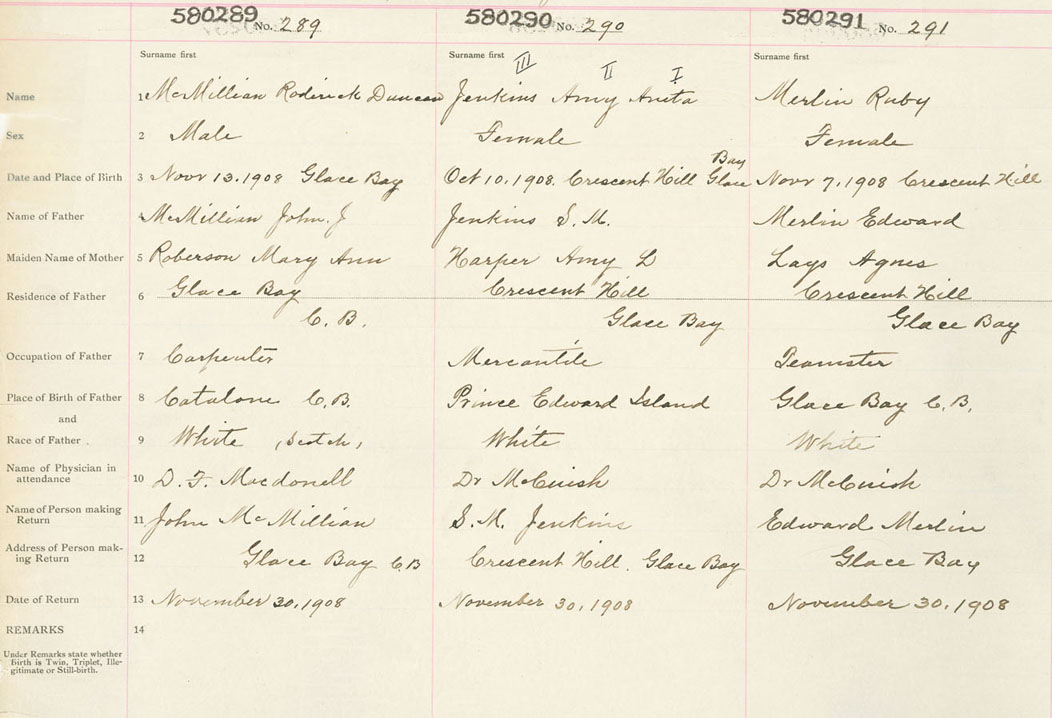 580289 No. 289 580290 No. 290 580291 No. 291
Surname first Surname first Surname first
III II I
Name 1 McMillian Roderick Duncan Jenkins Amy Anita Merlin Ruby
Sex 2 Male Female Female
Bay
Date and Place of Birth 3 Novr 13. 1908 Glace Bay Oct 10. 1908. Crescent Hill Glace Novr 7, 1908 Crescent Hill
Name of Father 4 McMillian John. J Jenkins S. M. Merlin Edward
Maiden Name of Mother 5 Roberson Mary Ann Harper Amy L Lays Agnes
Residence of Father 6 Glace Bay Crescent Hill Crescent Hill
C. B. Glace Bay Glace Bay
Occupation of Father 7 Carpenter Mercantile Teamster
Place of Birth of Father 8 Catalone C.B. Prince Edward Island Glace Bay C.B.
and
Race of Father 9 White (Scotch) White White
Name of Physician in
attendance 10 D. F. Macdonell Dr McCuish Dr McCuish
Name of Person making
Return 11 John McMillian S. M. Jenkins Edward Merlin
Address of Person mak-
ing Return 12 Glace Bay C.B Crescent Hill. Glace Bay Glace Bay
Date of Return 13 November 30. 1908 November 30, 1908 November 30. 1908
REMARKS 14
Under Remarks state whether
Birth is Twin, Triplet, Ille-
gitimate or Still-birth.